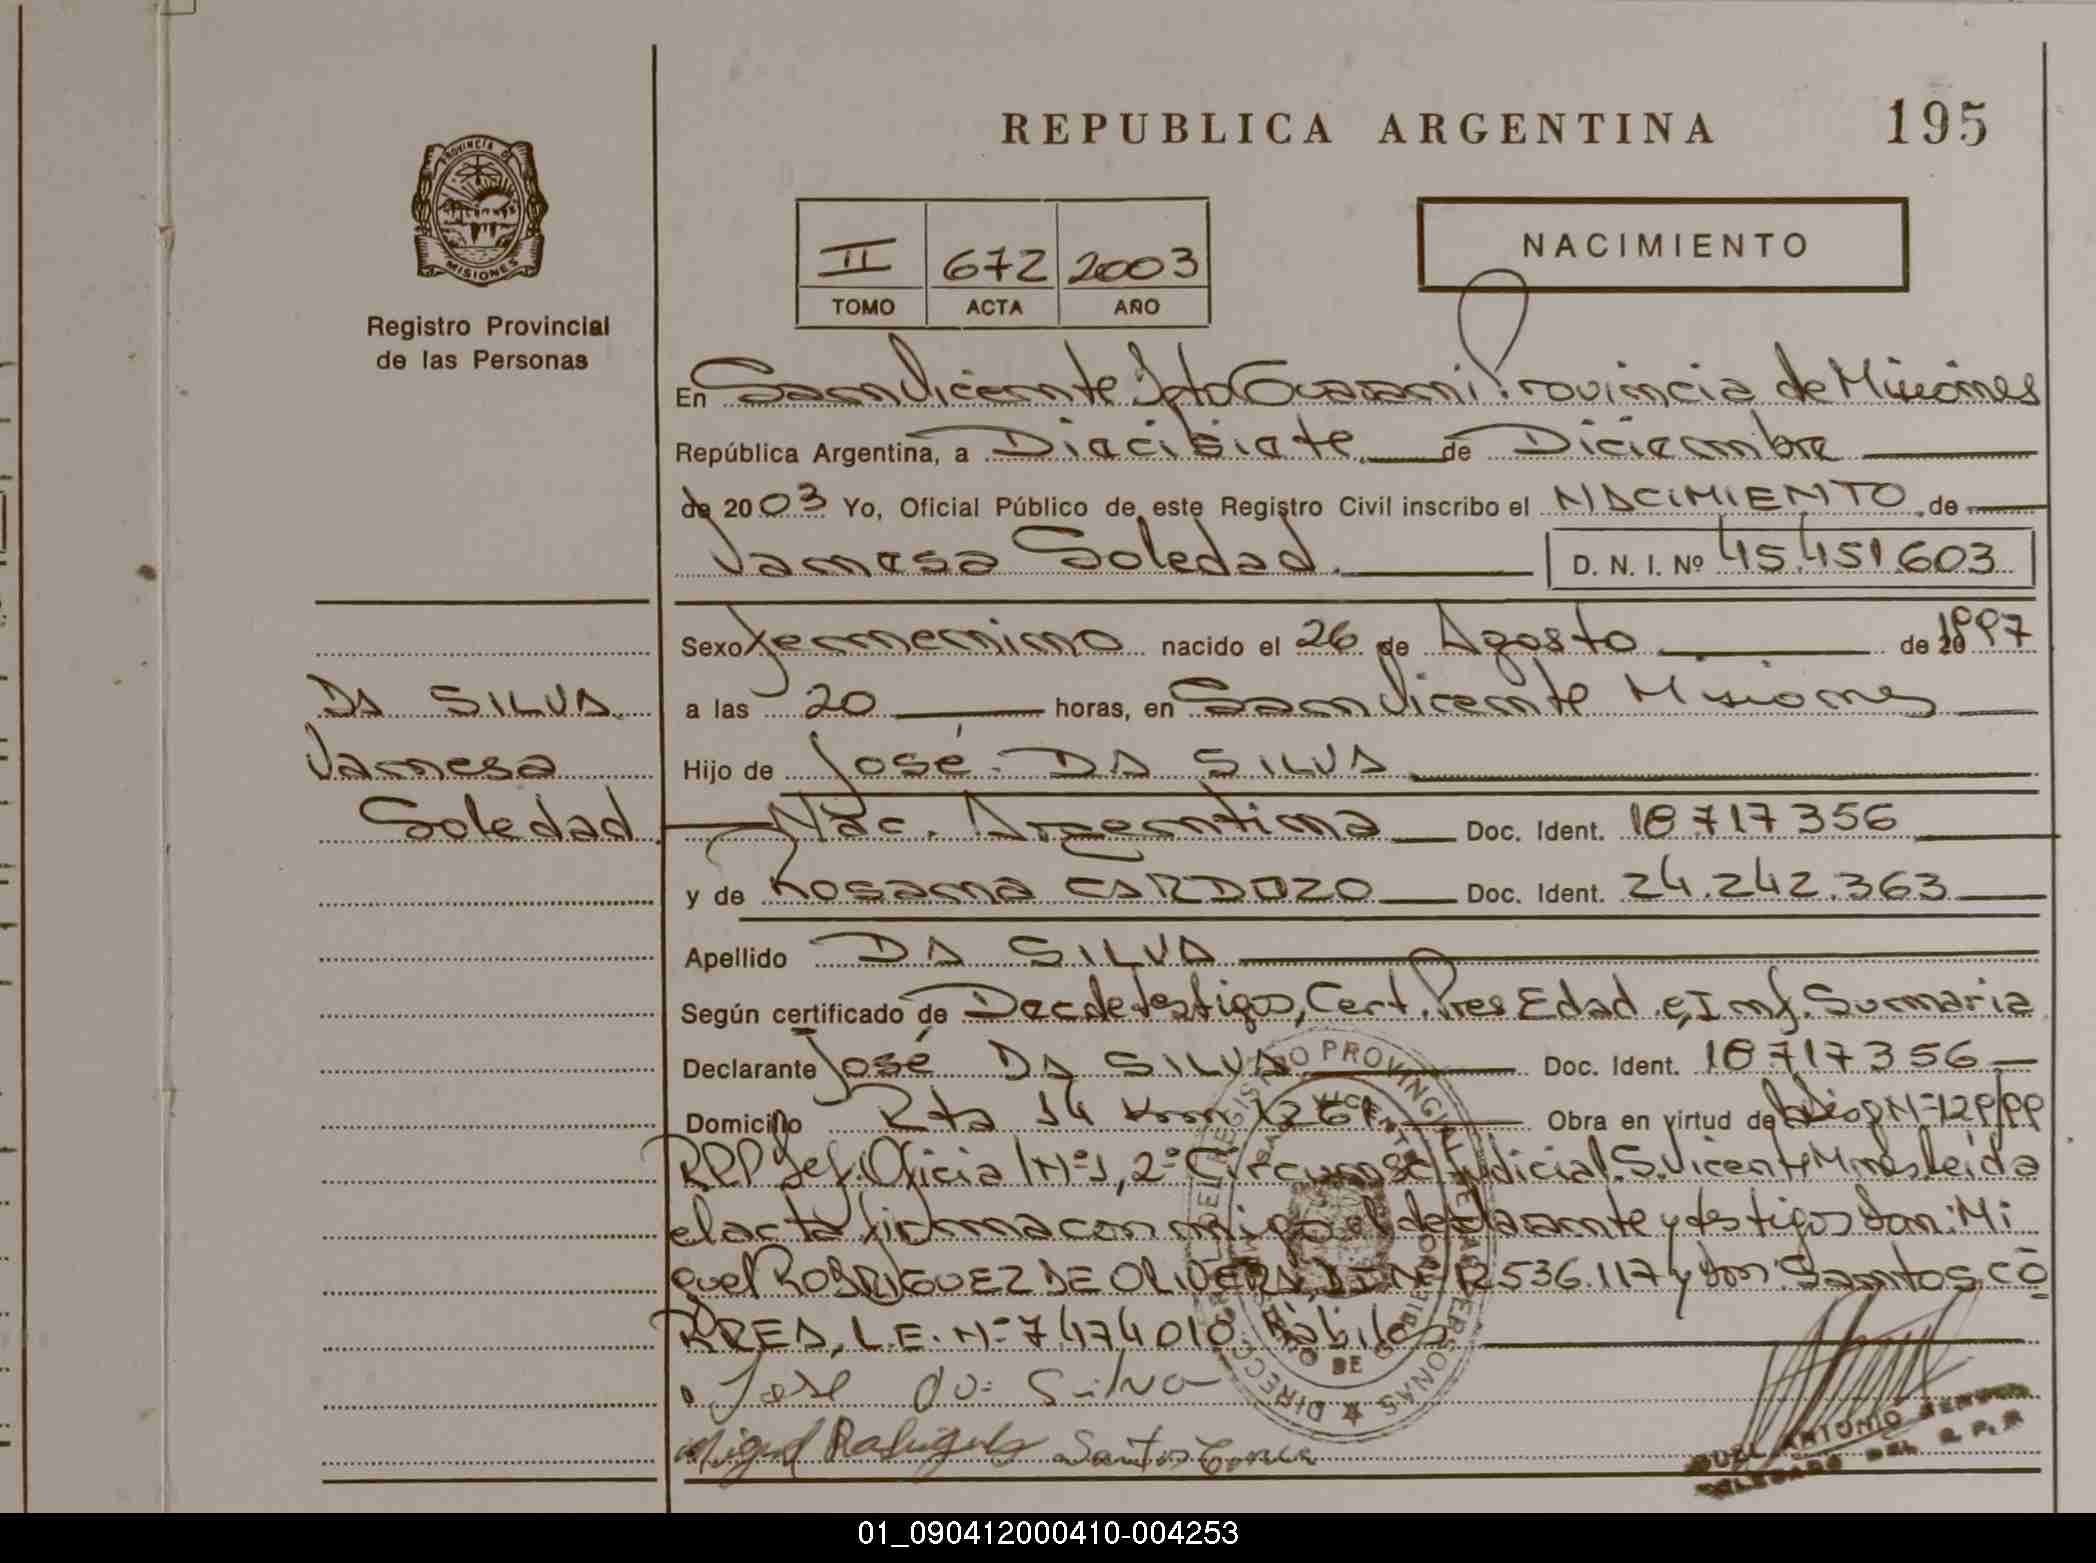 REPUBLICA ARGENTINA
195
PROVINCIA DE
MISIONES
Registro Provincial
de las Personas
II 672 2003
TOMO ACTA AÑO
NACIMIENTO
En San Vicente Dpto Guarani Provincia de Misiones
República Argentina, a Diecisiete de Diciembre
de 2003 Yo, Oficial Público de este Registro Civil inscribo el NACIMIENTO de
Vanesa Soledad. D. N. I. Nº 45.451.603
Sexo femenino nacido el 26 de Agosto de 20 1997
DA SILVA
a las 20 horas, en San Vicente Misiones
Vanesa
Hijo de José DA SILVA
Soledad
Nac. Argentina Doc. Ident. 18717356
y de Rosana CARDOZO Doc. Ident. 24.242.363
Apellido DA SILVA
Según certificado de Dec de testigos, Cert. Pres Edad e Inf. Sumaria
Declarante José DA SILVA Doc. Ident. 18717356
Domicilio Rta 14 Km 1261 Obra en virtud de
RPP Def. Oficial Nº 1, 2º Circunsc Judicial S. Vicente Mnes leida
el acta firma con migo el declarante y testigos Don: Mi
guel RODRIGUEZ DE OLIVERA, D.I.Nº 12536.117 y Don Santos CO
RREA, L.E. Nº 7.474.018. Hábiles
Jose da Silva
Miguel Rodriguez Santos Correa
ANTONIO
DELEGADO DEL R.P.P
DIRECC DEL REGISTRO PROVINCIAL DE LAS PERSONAS
SAN VICENTE
MINISTERIO DE GOBIERNO
01_090412000410-004253